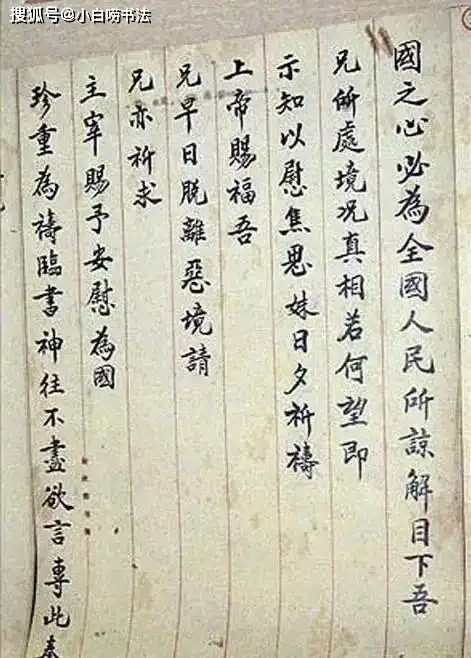 搜狐号@小白唠书法
國之心必為全國人民所諒解目下吾
兄所處境况真相若何望即
示知以慰焦思妹日夕祈禱
上帝賜福吾
兄早日脫離惡境請
兄亦祈求
主宰賜予安慰為國
珍重為禱臨書神往不盡欲言專此奉